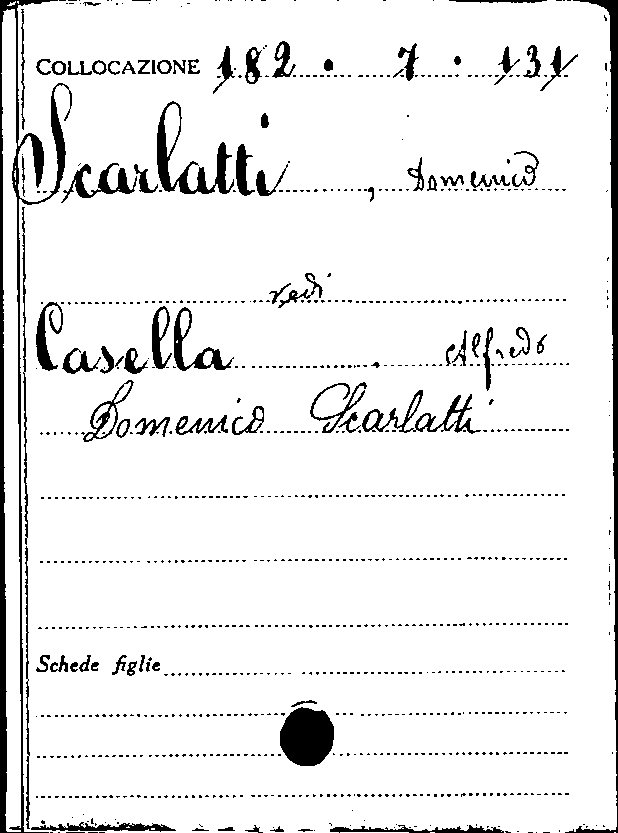 COLLOCAZIONE 182 . 7 . 131
Scarlatti , Domenico
vedi
Casella . Alfredo
Domenico Scarlatti
Schede figlie